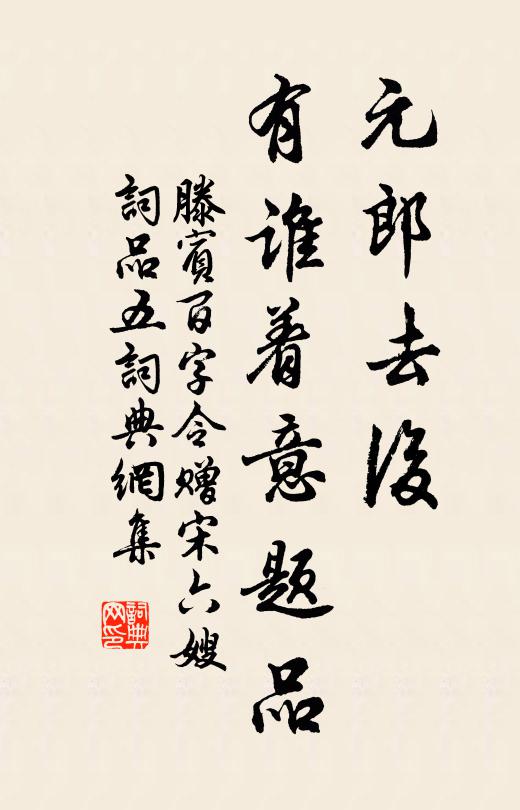 元郎去後
有谁着意题品
滕賓百字令赠宋六嫂
詞品五詞典網集
詞典网印